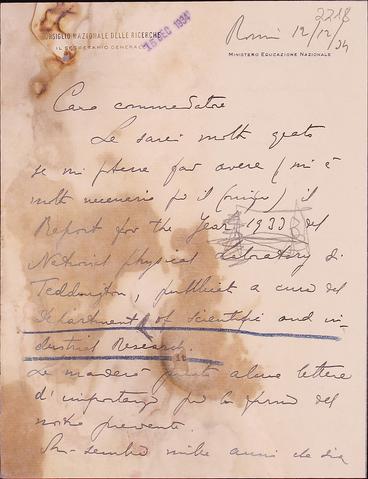 2218
CONSIGLIO NAZIONALE DELLE RICERCHE
IL SEGRETARIO GENERALE
15 DEC 1934
Roma 12/12/34
MINISTERO EDUCAZIONE NAZIONALE
Caro commendatore
Le sarei molto grato
se mi potesse far avere (mi è
molto necessario per il) il
Report for the Year 1933 del
National physical Laboratory di
Teddington, pubblicato a cura del
Department of Scientific and in-
dustrial Research.
Le manderò alcune lettere
d'importanza per la firma del
nostro presidente.
mille anni che sia